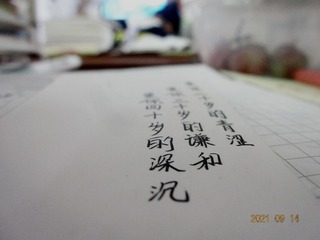 你二十岁的青涩
你三十岁的谦和
你四十岁的深沉
2021 09 14